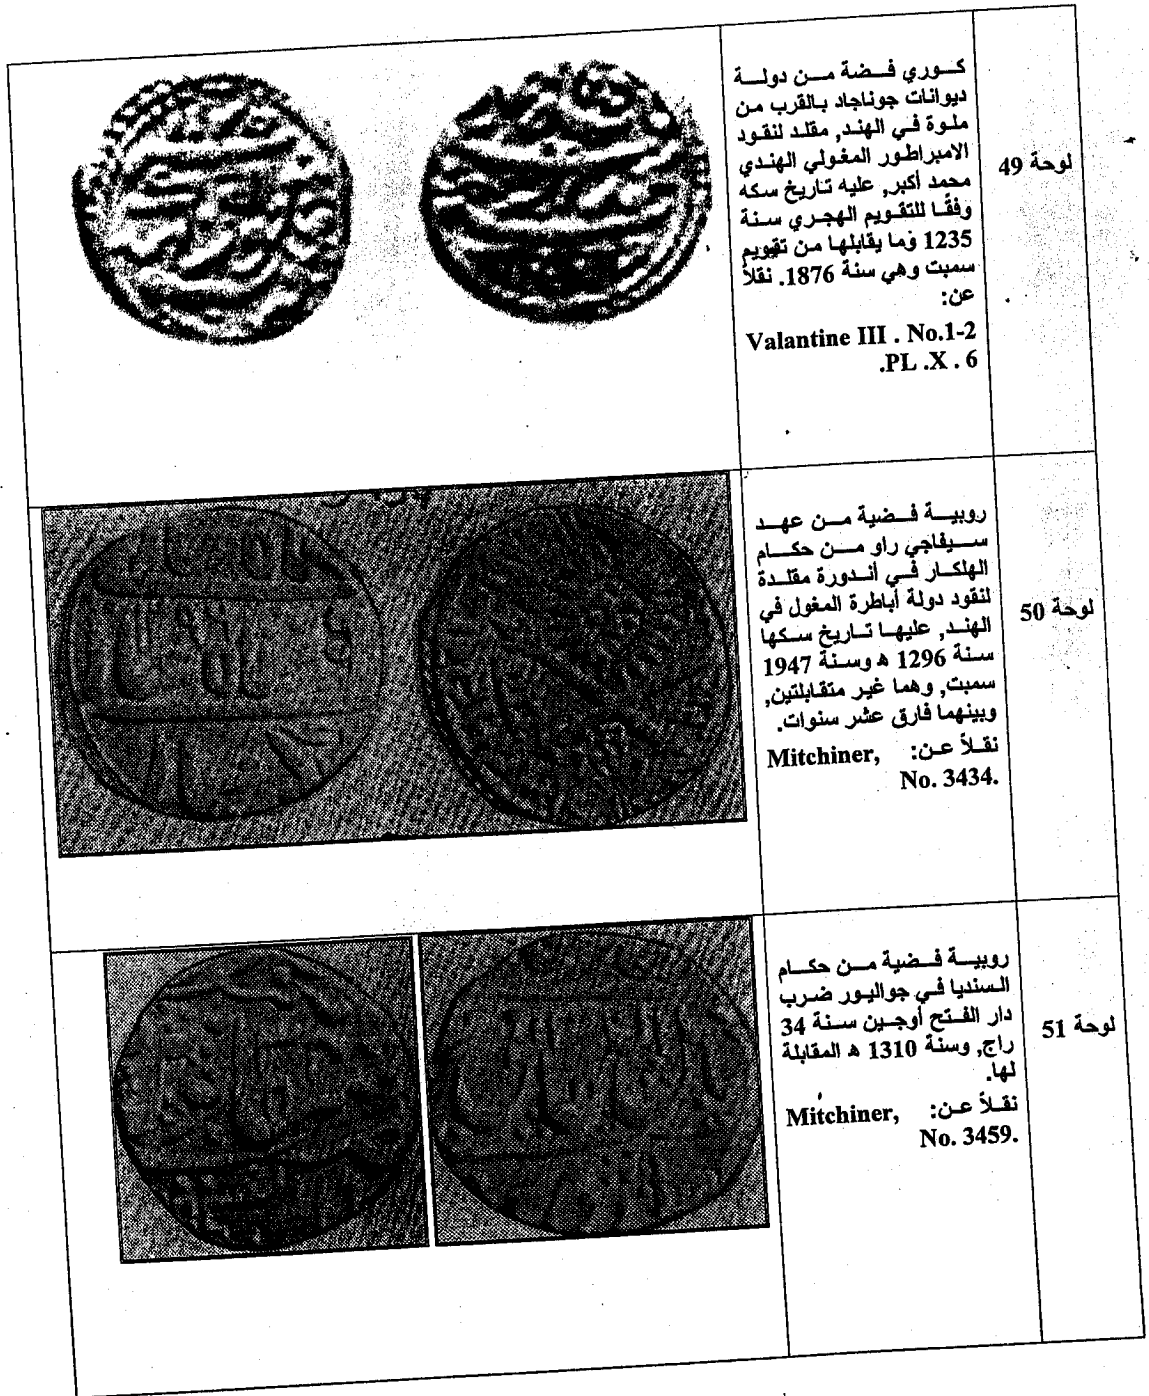 لوحة 49
كوري فضة من دولة
ديوانات جوناجاد بالقرب من
ملوة في الهند, مقلد لنقود
الامبراطور المغولي الهندي
محمد أكبر, عليه تاريخ سكه
وفقًا للتقويم الهجري سنة
1235 وما يقابلها من تقويم
سمبت وهي سنة 1876. نقلاً
عن:
Valantine III . No.1-2
.PL .X . 6
لوحة 50
روبية فضية من عهد
سيفاجي راو من حكام
الهلكار في أندورة مقلدة
لنقود دولة أباطرة المغول في
الهند, عليها تاريخ سكها
سنة 1296 ه وسنة 1947
سمبت, وهما غير متقابلتين,
وبينهما فارق عشر سنوات.
نقلاً عن: Mitchiner,
No. 3434.
لوحة 51
روبية فضية من حكام
السنديا في جواليور ضرب
دار الفتح أوجين سنة 34
راج, وسنة 1310 ه المقابلة
لها.
نقلاً عن: Mitchiner,
No. 3459.